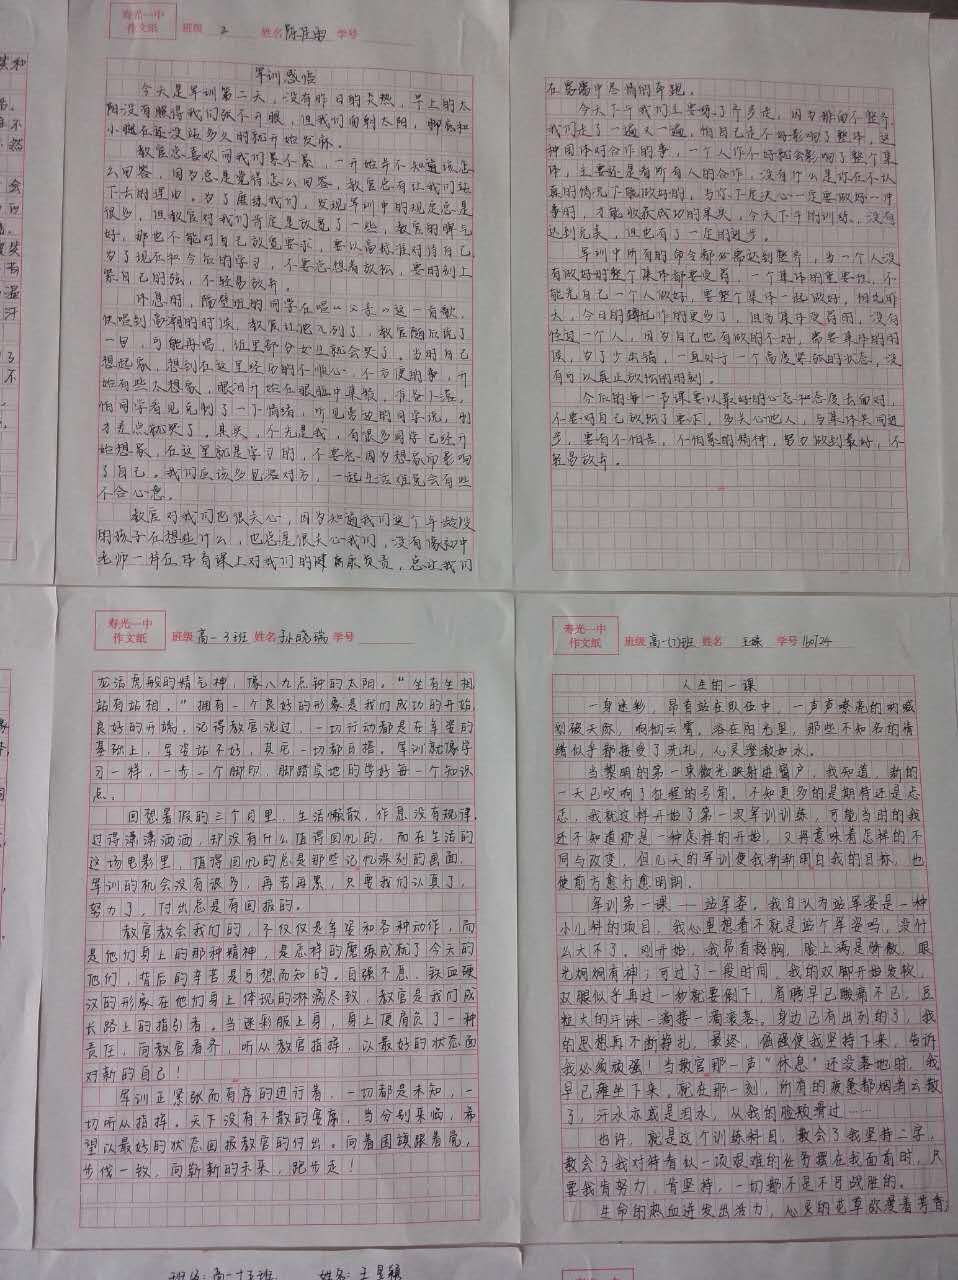 寿光一中
作文纸 班级 2 姓名 学号
军训感悟
今天是军训第二天,没有昨日的炎热,早上的太
阳没有照得我们张不开眼,但我们面朝太阳,脚底和
小腿在还没站多久的就开始发麻。
教官总喜欢问我们累不累,一开始并不知道该怎
么回答,因为总是觉得怎么回答,教官总有让我们站
下去的理由。为了磨练我们,发现军训中的规定总是
很多,但教官对我们肯定是放宽了一些,教官的脾气
好,那也不能对自己放宽要求,要以高标准对待自己
为了现在和今后的学习,不要总想着放松,要时刻上
紧自己的弦,不轻易放弃。
休息时,隔壁班的同学在唱《父亲》这一首歌,
快唱到高潮的时候,教官让他飞到了,教官随后说了
一句,可能再唱,班里部分女生就会哭了。当时自己
想起家,想到在这里经历的不顺心,不方便的事,开
始有些太想家,眼泪开始在眼眶中集聚,准备下落,
怕同学看见克制了一下情绪,听见旁边的同学说,刚
才差点就哭了。其实,不光是我,有很多同学已经开
始想家,在这里就是学习的,不要总因为想家而影响
了自己。我们应该多包容对方,一起生活难免会有些
不合心意。
教官对我们也很关心,因为知道我们这个年龄段
的孩子在想些什么,也总是很关心我们,没有像初中
老师一样在体育课上对我们的健康不负责,总让我们
在雾霾中尽情的奔跑。
今天下午我们主要练了齐步走,因为排面不整齐
我们走了一遍又一遍,怕自己走不好影响了整体,这
种团体对合作的事,一个人作不好就会影响了整个集
体,主要还是看所有人的合作,没有什么是你在不认
真的情况下能做好的,当你下定决心一定要做好一件
事时,才能收获成功的果实,今天下午的训练,没有
达到完美,但也有了一定的进步。
军训中所有的命令都必需达到整齐,当一个人没
有做好时整个集体都要受罚,一个集体的重要性,不
能光自己一个人做好,要整个集体一起做好,相比昨
天,今日的蹲起作的更多了,但当集体受罚时,没有
怪过一个人,因为自己也有做的不好,需要集体的时
候,为了少出错,一直处于一个高度紧张的状态,没
有可以真正放松的时刻。
今后的每一节课要以最好的心态和态度去面对,
不要对自己放松了要求,多关心他人,与集体共同进
步,要有不怕苦,不怕累的精神,努力做到最好,不
轻易放弃。
寿光一中
作文纸 班级 高一 3班 姓名 孙晓瑞 学号
龙活虎般的精气神,像八九点钟的太阳。“坐有坐相
站有站相。”拥有一个良好的形象是我们成功的开始,
良好的开端。记得教官说过,一切行动都是在军姿的
基础上,军姿站不好,其元一切都白搭。军训就像学
习一样,一步一个脚印,脚踏实地的学好每一个知识
点。
回想暑假的三个月里,生活懒散,作息没有规律,
过得潇潇洒洒,却没有什么值得回忆的,而在生活的
这场电影里,值得回忆的总是那些记忆深刻的画面,
军训的机会没有很多,再苦再累,只要我们认真了,
努力了,付出总是有回报的。
教官教会我们的,不仅仅是军姿和各种动作,而
是他们身上的那种精神,是怎样的磨练成就了今天的
他们,背后的辛苦是可想而知的。自强不息,铁血硬
汉的形象在他们身上体现的淋漓尽致,教官是我们成
长路上的指引者。当迷彩服上身,身上便肩负了一种
责任,向教官看齐,听从教官指挥,以最好的状态面
对新的自己!
军训正紧张而有序的进行着,一切都是未知,一
切听从指挥。天下没有不散的宴席,当分别来临,希
望以最好的状态回报教官的付出。向着困镇跟着党,
步伐一致,向崭新的未来,跑步走!
寿光一中
作文纸 班级 高一(7)班 姓名 王臻 学号 160724
人生的一课
一身迷彩,昂首站在队伍中,一声声嘹亮的呐喊
划破天际,响彻云霄。浴在阳光里,那些不知名的情
绪似乎都接受了洗礼,心灵澄澈如水。
当黎明的第一束微光映射进窗户,我知道,新的
一天已吹响了征程的号角。不知更多的是期待还是忐
忑,我就这样开始了第一次军训训练,可能当时的我
还不知道那是一种怎样的开始,又将意味着怎样的不
同与改变,但几天的军训使我渐渐明白我的目标,也
使前方愈行愈明朗。
军训第一课——站军姿。我自认为站军姿是一种
小儿科的项目,我心里想着不就是站个军姿吗,没什
么大不了。刚开始,我昂首挺胸,脸上满是骄傲,眼
光炯炯有神;可过了一段时间,我的双脚开始发软,
双腿似乎再过一秒就要倒下,肩膀早已酸痛不已,豆
粒大的汗珠一滴接一滴滚落。身边已有出列的了,我
的思想再不断挣扎,最终,倔强使我坚持下来,告诉
我必须顽强!当教官那一声“休息”还没落地时,我
早已瘫坐下来。就在那一刻,所有的疲惫都烟消云散
了,汗水亦或是泪水,从我的脸颊滑过……
也许,就是这个训练科目,教会了我坚持二字,
教会了我对待看似一项艰难的任务摆在我面前时,只
要我肯努力,肯坚持,一切都不是不可战胜的。
生命的热血迸发出活力,心灵的花草弥漫着芳香
班级:高一十五班 姓名:王星颖
寿光一中